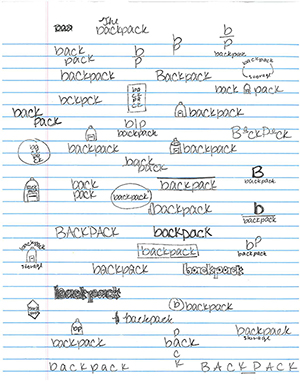 The
backpack
b
p
backpack
back
pack
b
p
b
p
backpack
storage
backpack
Backpack
back pack
bckpck
backpack
back
pack
b|p
backpack
BackPack
backpack
backpack
back
pack
B
backpack
back
pack
backpack
backpack
backpack
b
backpack
BACKPACK
backpack
bp
backpack
backpack
storage
backpack
backpack
backpack
backpack
(b) backpack
backpack
bp
backpack
storage
backpack
p
back
c
k
backpack
backpack
BACKPACK